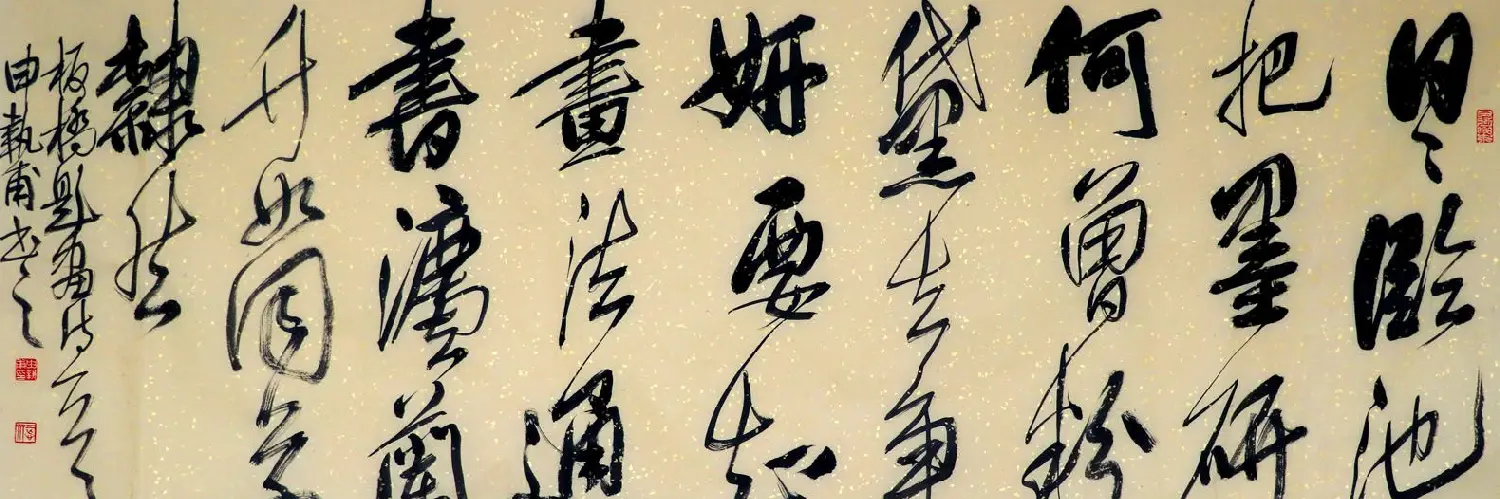 日〻臨池
把墨研
何曾粉
黛去爭
妍要知
畫法通
書灋蘭
竹如同草
隸然
板橋題畫詩
申執甫书之